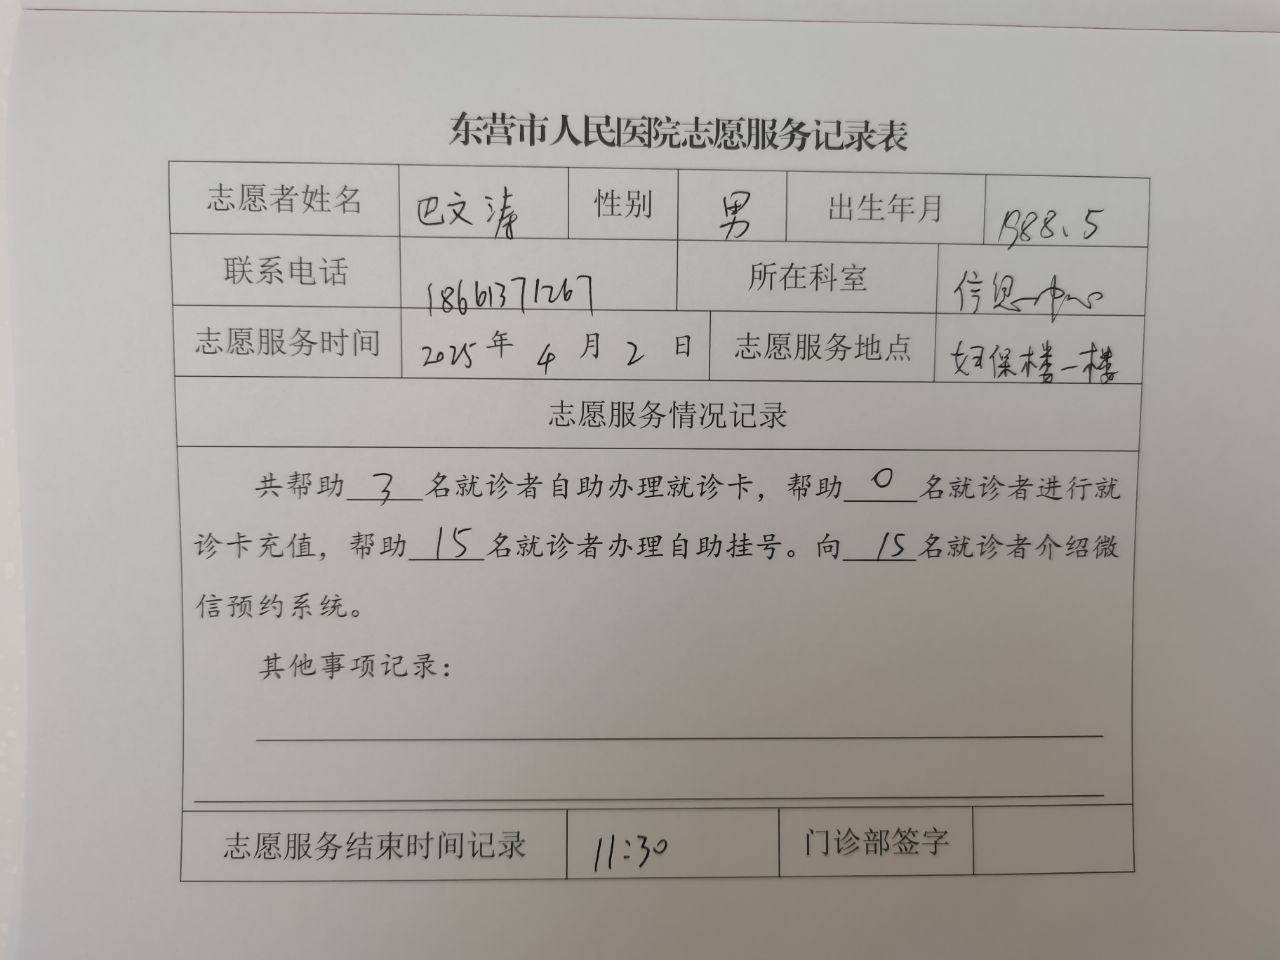 东营市人民医院志愿服务记录表
志愿者姓名 巴文涛 性别 男 出生年月 1988.5
联系电话 18661371267 所在科室 信息中心
志愿服务时间 2025年4月2日 志愿服务地点 妇保楼一楼
志愿服务情况记录
共帮助3名就诊者自助办理就诊卡，帮助0名就诊者进行就
诊卡充值，帮助15名就诊者办理自助挂号。向15名就诊者介绍微
信预约系统。
其他事项记录：
志愿服务结束时间记录 11:30 门诊部签字